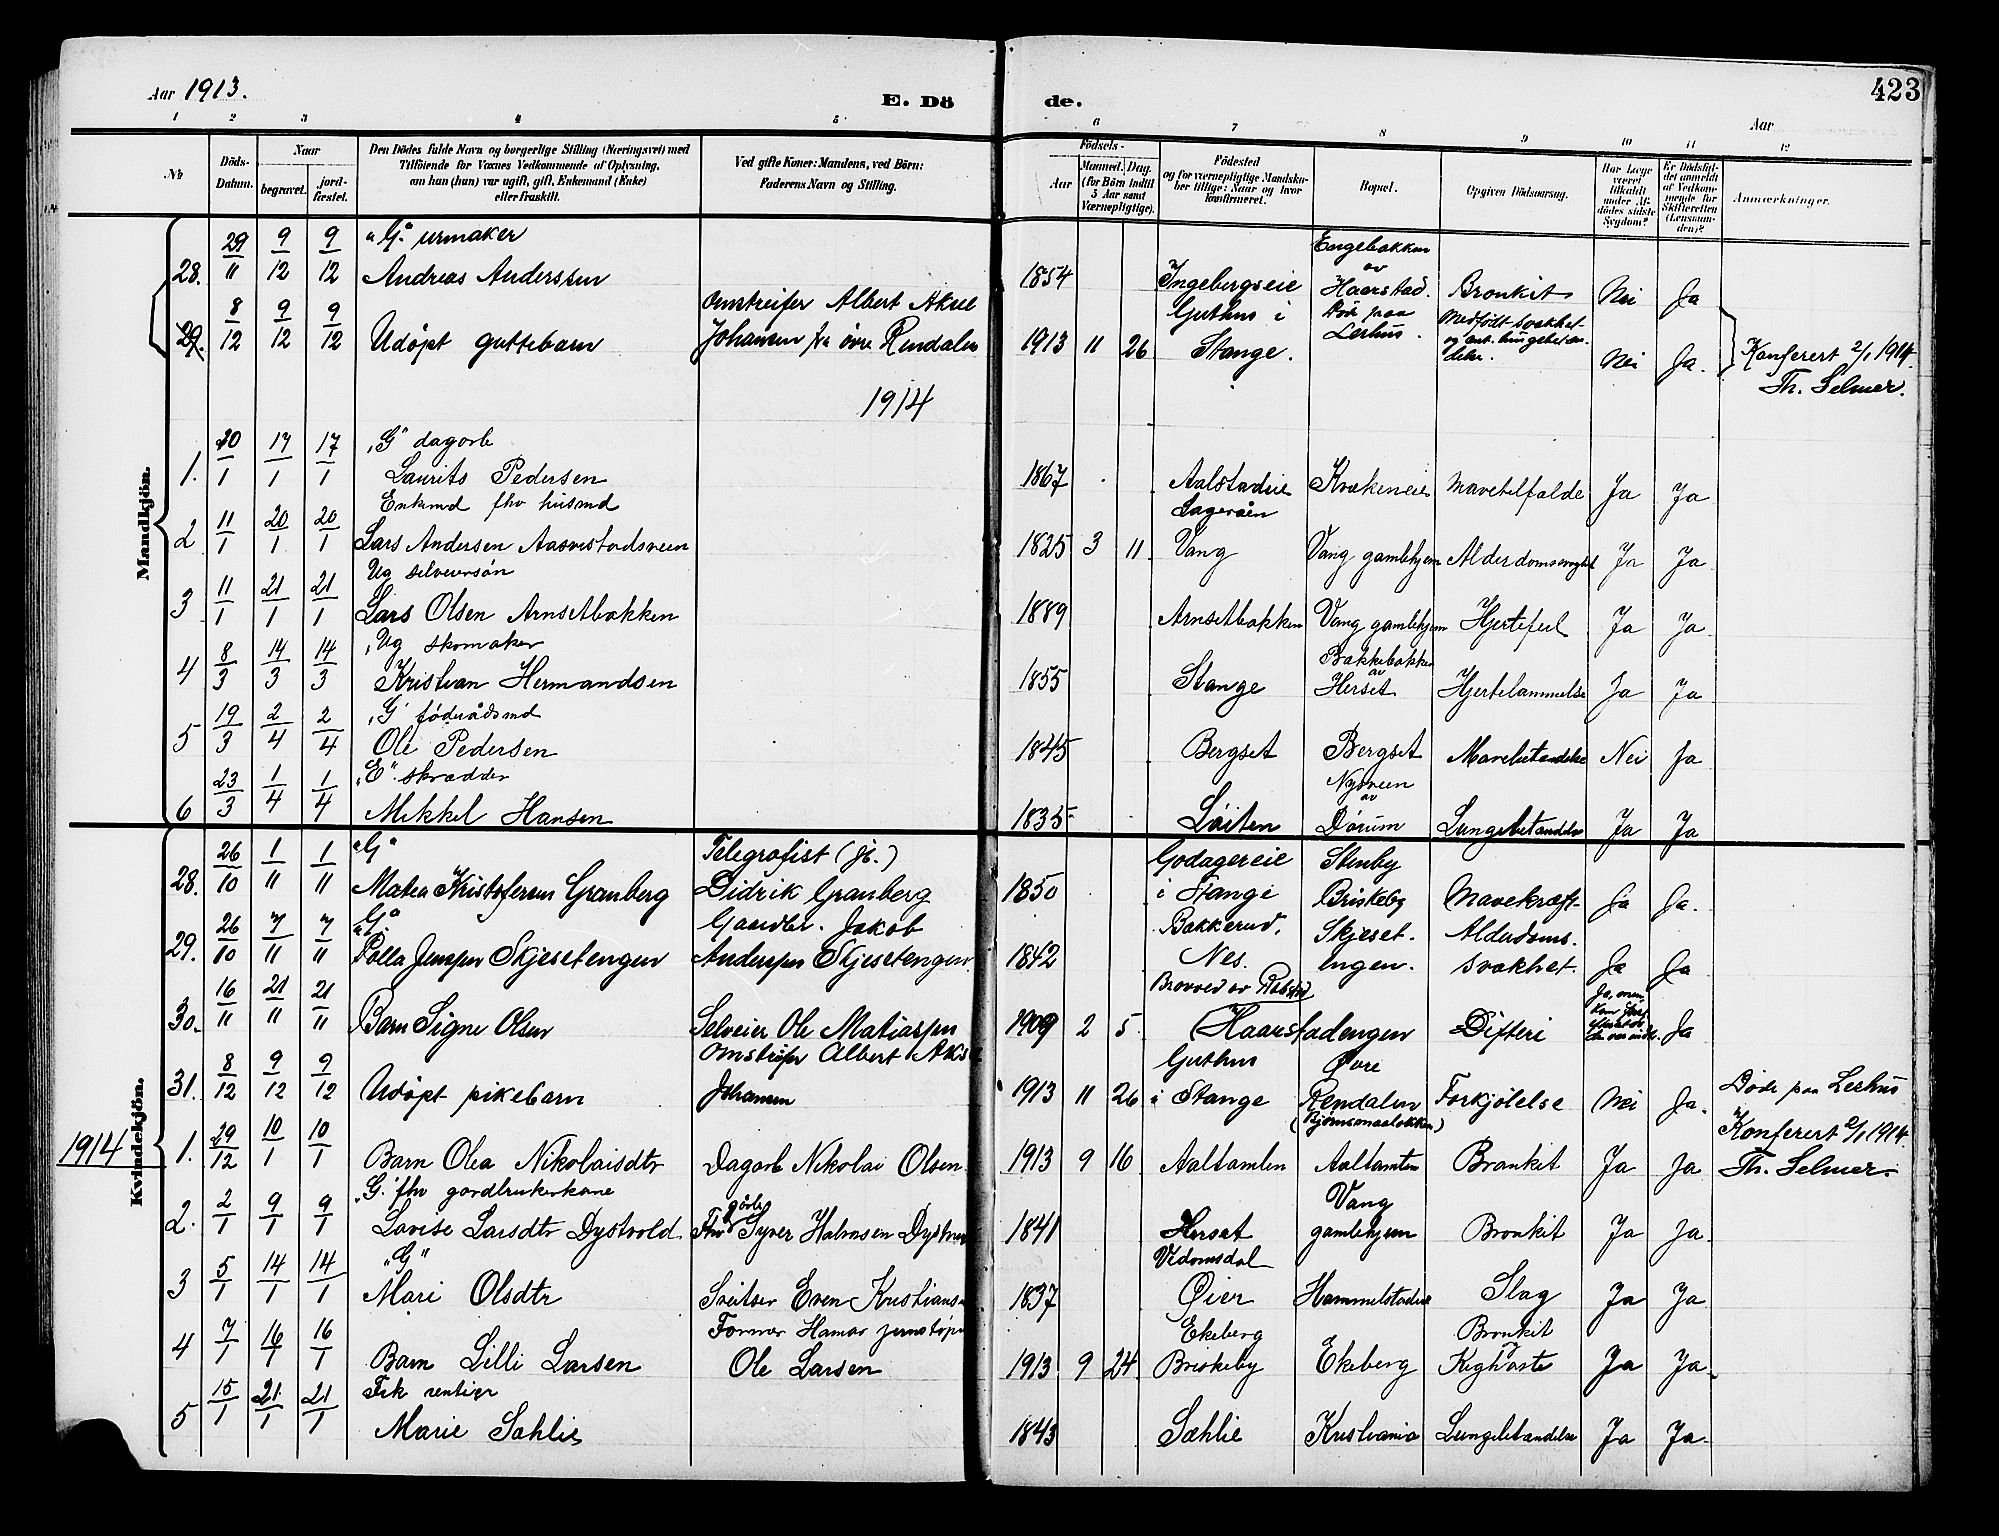 423
Aar 1913.
E. Döde.
Aar
1 2 3 4 5 6 7 8 9 10 11 12
No
Döds-Datum.
Naar
begravet.
jord-fæstet.
Den Dödes fulde Navn og borgerlige Stilling (Næringsvei) med
Tilföiende for Voxnes Vedkommende af Oplysning,
om han (hun) var ugift, gift, Enkemand (Enke)
eller fraskilt.
Ved gifte Koner: Mandens, ved Börn:
Faderens Navn og Stilling.
Födsels-
Aar
Maaned. Dag.
(for Börn indtil
5 Aar samt
Værnepligtige).
Födested
og for værnepligtige Mandsku-
ber tillige: Naar og hvor
konfirmeret.
Bopæl.
Opgiven Dödsaarsag.
Har Læge
været
tilkaldt
under Af-
dödes sidste
Sygdom?
Er Dödsfal-
det anmeldt
af Vedkom-
mende for
Skifteretten
(Lensman-
den)?
Anmærkninger.
Mandkjön.
28. 29/11 9/12 9/12 "G" urmaker
Andreas Anderssen 1854 Ingebergseie Engebakken av Haarstad. Bronkit Nei Ja
29. 8/12 9/12 9/12 Udöpt guttebarn Omstreifer Albert Aksel
Johansen fra övre Rendalen 1913 11 26 Guthus i Stange. Död paa Lerhus. Medfödt svakhet Nei Ja.
Konferert 2/1 1914.
Th. Selmer.
1914
1. 10/1 17/1 17/1 "G" dagarb
Laurits Pedersen 1867 Aalstadeie Kvækeneie Mavetilfælde Ja Ja
2 11/1 20/1 20/1 Enkemd fhv husmd
Lars Andersen Aasvestadsveen 1825 3 11 Lageraaen Vang Vang gamlehjem Alderdomssvaghet Ja Ja
3 11/1 21/1 21/1 Ug selveiersön
Lars Olsen Arnsetbakken 1889 Arnsetbakken Vang gamlehjem Hjertefeil Ja Ja
4 8/3 14/3 14/3 "Ug skomaker
Kristian Hermandsen 1855 Stange Bakkebakken av Herset Hjertelammelse Ja Ja
5 19/3 2/4 2/4 "G" föderådsmd
Ole Pedersen 1845 Bergset Bergset Mavebetændelse Nei Ja
6 23/3 1/4 1/4 "E" skrædder
Mikkel Hansen 1835 Löiten Nyveen av Dörum Lungebetændelse Ja Ja
Kvindekjön.
28. 26/10 1/11 1/11 "G"
Matea Kristofersen Granberg Telegrafist (Jb.)
Didrik Granberg 1850 Godagereie i Stange Stenby Briskeby Mavekræft Ja Ja.
29. 26/10 7/11 7/11 "G"
Polla Jenssen Skjesetengen Gaardbr. Jakob
Anderssen Skjesetengen 1842 Bakkerud, Nes. Skjesetengen. Alderdomssvakhet. Ja Ja
30. 16/11 21/11 21/11 Barn Signe Olsen Selveier Ole Matiassen 1909 2 5 Haarstadengen Difteri Ja
31. 8/12 9/12 9/12 Udöpt pikebarn Omstreifer Albert Aksel
Johansen 1913 11 26 Guthus i Stange Övre Rendalen Forkjölelse Nei Ja.
Döde paa Lerhus
Konferert 2/1 1914.
Th. Selmer.
1914
1. 29/12 10/1 10/1 Barn Olea Nikolaisdtr Dagarb Nikolai Olsen 1913 9 16 Aaltamten Aaltamten Bronkit Ja Ja
2. 2/1 9/1 9/1 "G" fhv gardbrukerkone
Lovise Larsdtr Dystvold. Fhv gdbr Syver Halvorsen 1841 Herset Vang gamlehjem Bronkit Ja Ja.
3 5/1 14/1 14/1 "G"
Mari Olsdtr Sveitser Even Kristians. 1837 Vedomsdal Öier Hammelstadeie Slag Ja Ja.
4 7/1 16/1 16/1 Barn Lilli Larsen Former Hamar jernstöp
Ole Larsen 1913 9 24 Ekeberg Briskeby Ekeberg Bronkit Kighoste Ja Ja.
5 15/1 21/1 21/1 Frk rentier
Marie Sæhlie 1843 Sæhlie Kristiania Lungebetændelse Ja Ja.